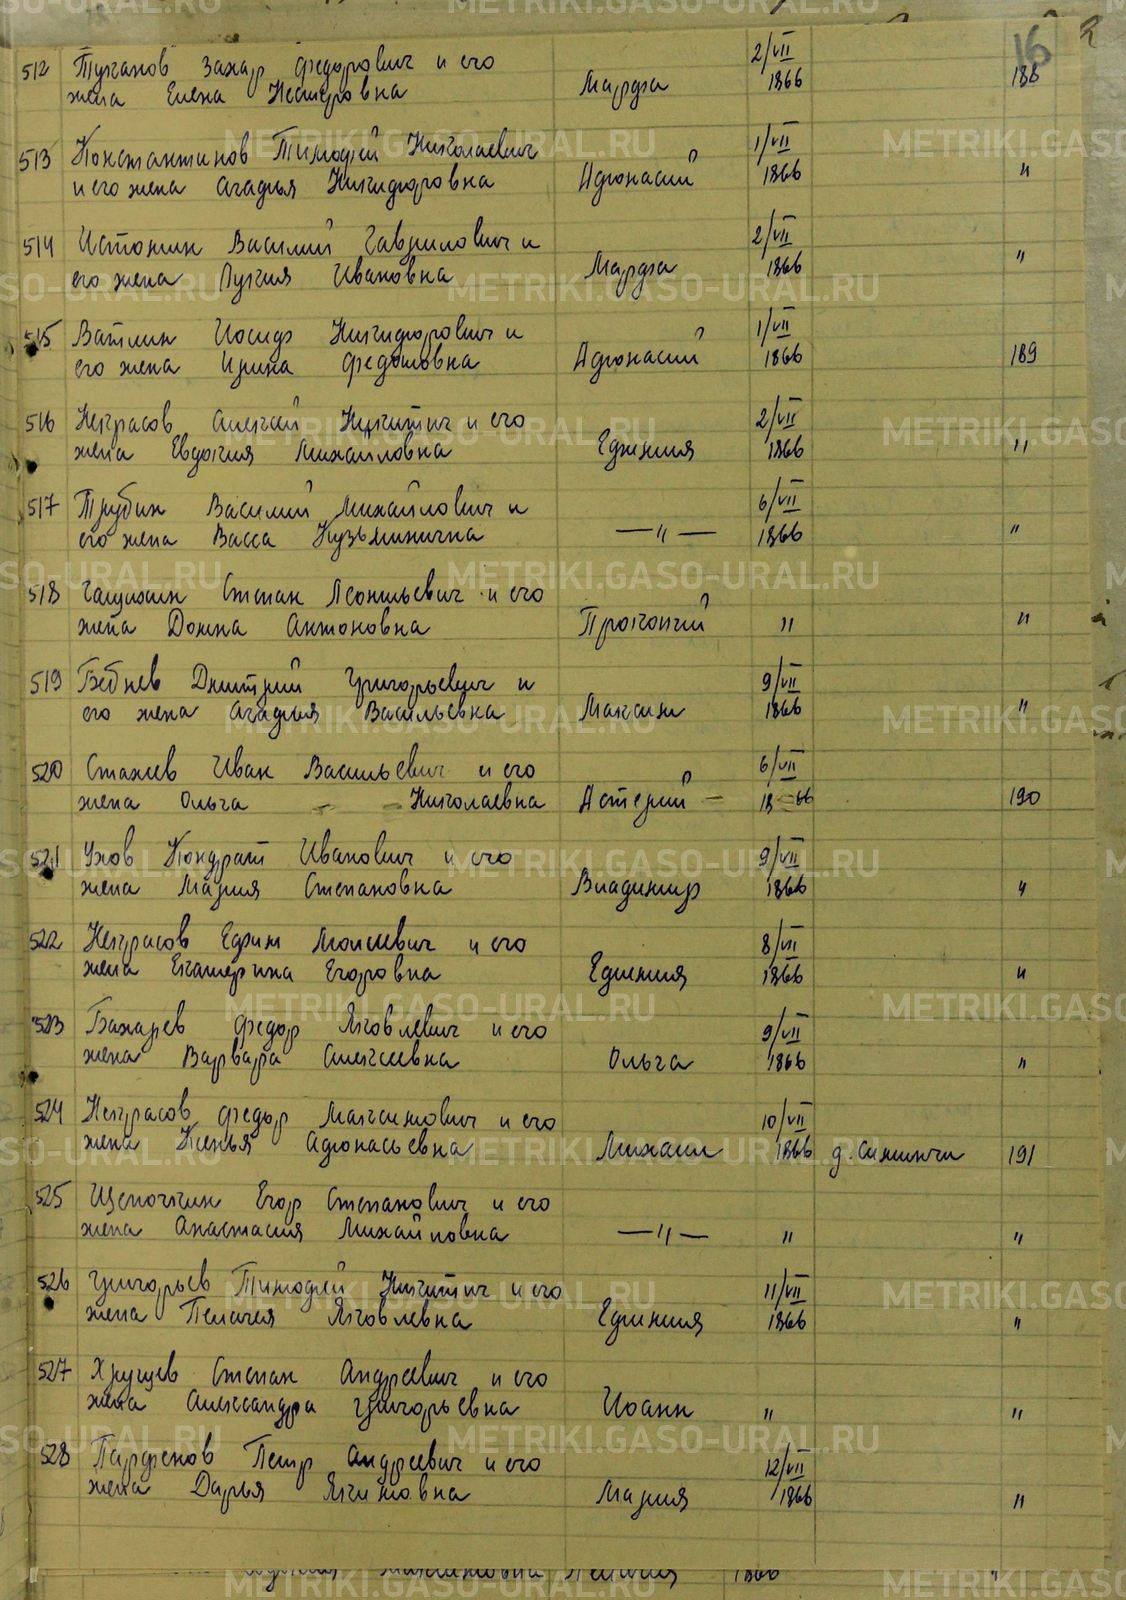 16
2/VII
512 Туканов Захар Федорович и его
жена Елена Несторовна Марфа 1866 188
1/VII
513 Константинов Тимофей Николаевич
и его жена Агафья Никифоровна Афонасий 1866 "
2/VII
514 Истомин Василий Гаврилович и
его жена Лукия Ивановна Марфа 1866 "
1/VII
515 Ватлин Иосиф Никифорович и
его жена Ирина Федотовна Афонасий 1866 189
2/VII
516 Некрасов Алексей Никитич и его
жена Евдокия Михайловна Ефимия 1866 "
6/VII
517 Трубин Василий Михайлович и
его жена Васса Кузьминична — " — 1866 "
518 Степан Леонтьевич и его
жена Домна Антоновна Прокопий " "
9/VII
519 Дмитрий Григорьевич и
его жена Агафья Васильевна Максим 1866 "
6/VII
520 Стахиев Иван Васильевич и его
жена Ольга Николаевна Астерий 1866 190
9/VII
521 Ухов Кондрат Иванович и его
жена Мария Степановна Владимир 1866 "
8/VII
522 Некрасов Ефим Моисеевич и его
жена Екатерина Егоровна Ефимия 1866 "
9/VII
523 Бахарев Федор Яковлевич и его
жена Варвара Алексеевна Ольга 1866 "
10/VII
524 Некрасов Федор Максимович и его
жена Ксенья Афонасьевна Михаил 1866 191
525 Щепочкин Егор Степанович и его
жена Анастасия Михайловна — " — " "
11/VII
526 Григорьев Тимофей Никитич и его
жена Пелагея Яковлевна Ефимия 1866 "
527 Хрущев Степан Андреевич и его
жена Александра Григорьевна Иоанн " "
12/VII
528 Парфенов Петр Андреевич и его
жена Дарья Якимовна Мария 1866 "
METRIKI.GASO-URAL.RU